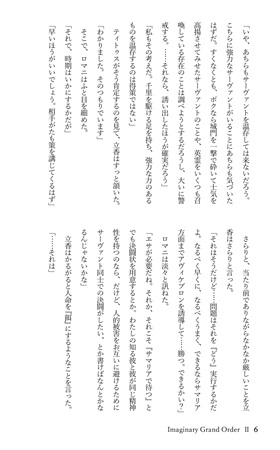 「いや、あちらもサーヴァントを温存しては来ないだろう。
こちらに強力なサーヴァントがいることにあちらも気づいた
はずだ。すくなくとも、ボクなら城門を一撃で砕いて士気を
高揚させてみせたサーヴァントのことや、英霊をいくつも召
喚している存在のことは調べようとするだろうし、大いに警
戒する。……それなら、誘い出したほうが確実だろう」
「私もその考えだ。千里を駆ける足を持ち、強力な力のある
ものを温存するのは得策ではない」
ティトゥスがそう肯定するのを見て、立香はすっと頷いた。
「わかりました。そのつもりでいます」
そこで、ロマニはふと目を細めた。
「それで、時期はいかにするかだが」
「早いほうがいいでしょう。相手がたも策を講じてくるはず」
さらりと、当たり前でありながらなかなか厳しいことを立
香はさらりと言った。
「それはそうだけど……問題はそれを『どう』実行するかだ
よ。なるべく早くに、なるべくうまく、できるならサマリア
方面までアヴィケブロンを誘導して……勝つ。できるかい？」
ロマニは淡々と訊ねた。
「エサが必要だね。それか、それこそ『サマリアで待つ』と
でも決闘状を用意するとか。わたしの知る彼と彼が同じ精神
性を持つのなら、だけど、人的被害をお互いに避けるために
サーヴァント同士での決闘がしたい、とか書けばなんとかな
るんじゃないかな」
立香はかるがると人命を『囮』にするようなことを言った。
「……それは」
Imaginary Grand Order Ⅱ 6